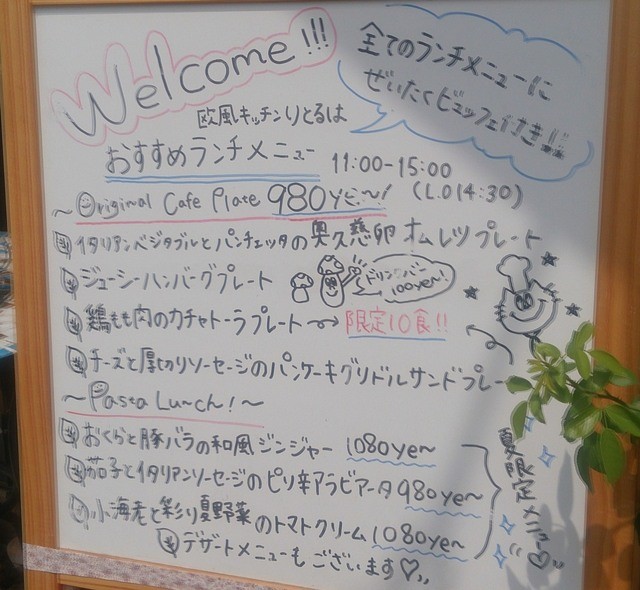 Welcome!!!
全てのランチメニューに
ぜいたくビュッフェ付き!!
欧風キッチンりとるは
おすすめランチメニュー 11:00-15:00
(L.O14:30)
~Original Cafe Plate 980yen~!
イタリアンベジタブルとパンチェッタの奥久慈卵オムレツプレート
ジューシーハンバーグプレート
ドリンクバー
100yen!
鶏もも肉のカチャトーラプレート 限定10食!!
チーズと厚切りソーセージのパンケーキグリドルサンドプレー
~Pasta Lunch!~
おくらと豚バラの和風ジンジャー 1080yen
茄子とイタリアンソーセージのピリ辛アラビアータ 980yen
小海老と彩り夏野菜のトマトクリーム 1080yen
夏限定メニュー♡
デザートメニューもございます♡